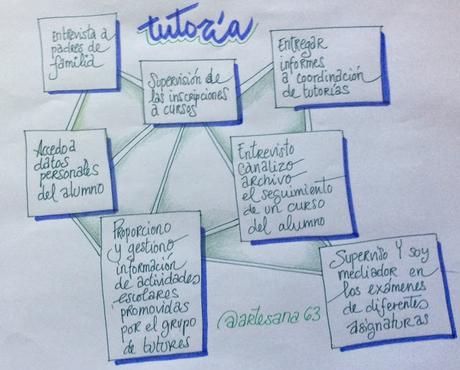 tutoría
Entrevista a
padres de
familia
Supervisión de
las inscripciones
a cursos
Entregar
informes
a coordinación
de tutorías
Accedo a
datos
personales
del alumno
Entrevisto
canalizo
archivo
el seguimiento
de un curso
del alumno
Proporciono
y gestiono
información
de actividades
escolares
promovidas
por el grupo
de tutores
Superviso y soy
mediador en
los exámenes
de diferentes
asignaturas
@artesana 63